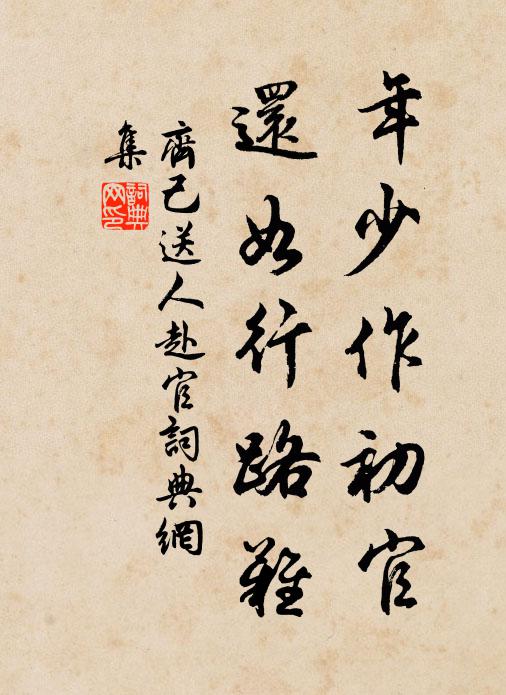 年少作初官
還如行路難
齊己送人赴官詞典網
集
詞典
网印